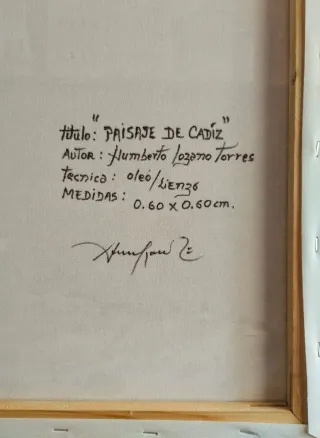 titulo: "PAISAJE DE CADÍZ"
AUTOR: Humberto Lozano Torres
tecnica: oleó/Lienzo
MEDIDAS: 0.60 x 0.60 cm.